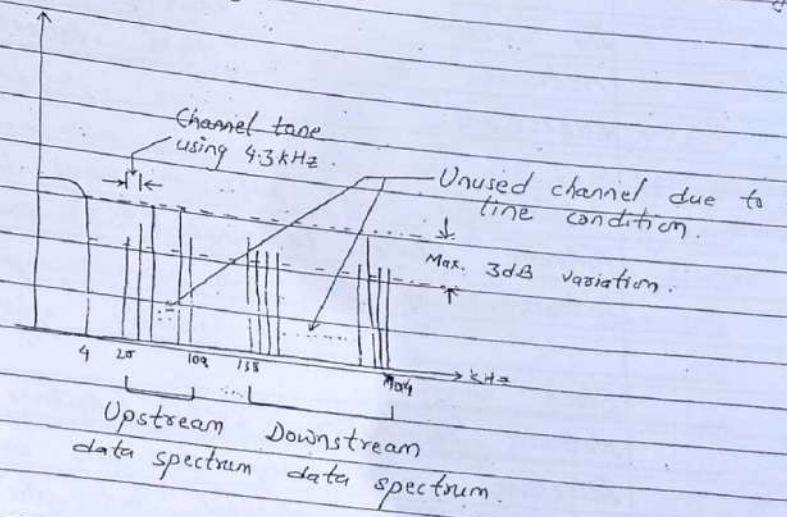 Channel tone
using 4.3kHz.
Unused channel due to
line condition.
Max. 3dB variation.
4 25 109 138 kHz
Upstream Downstream
data spectrum data spectrum.